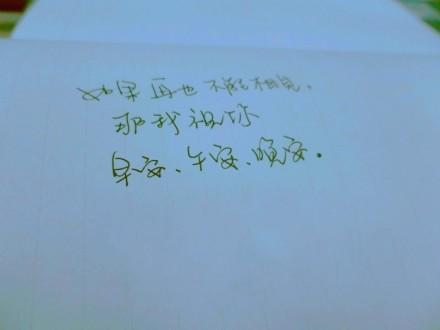 如果再也不能相见，
那我祝你
早安、午安、晚安。